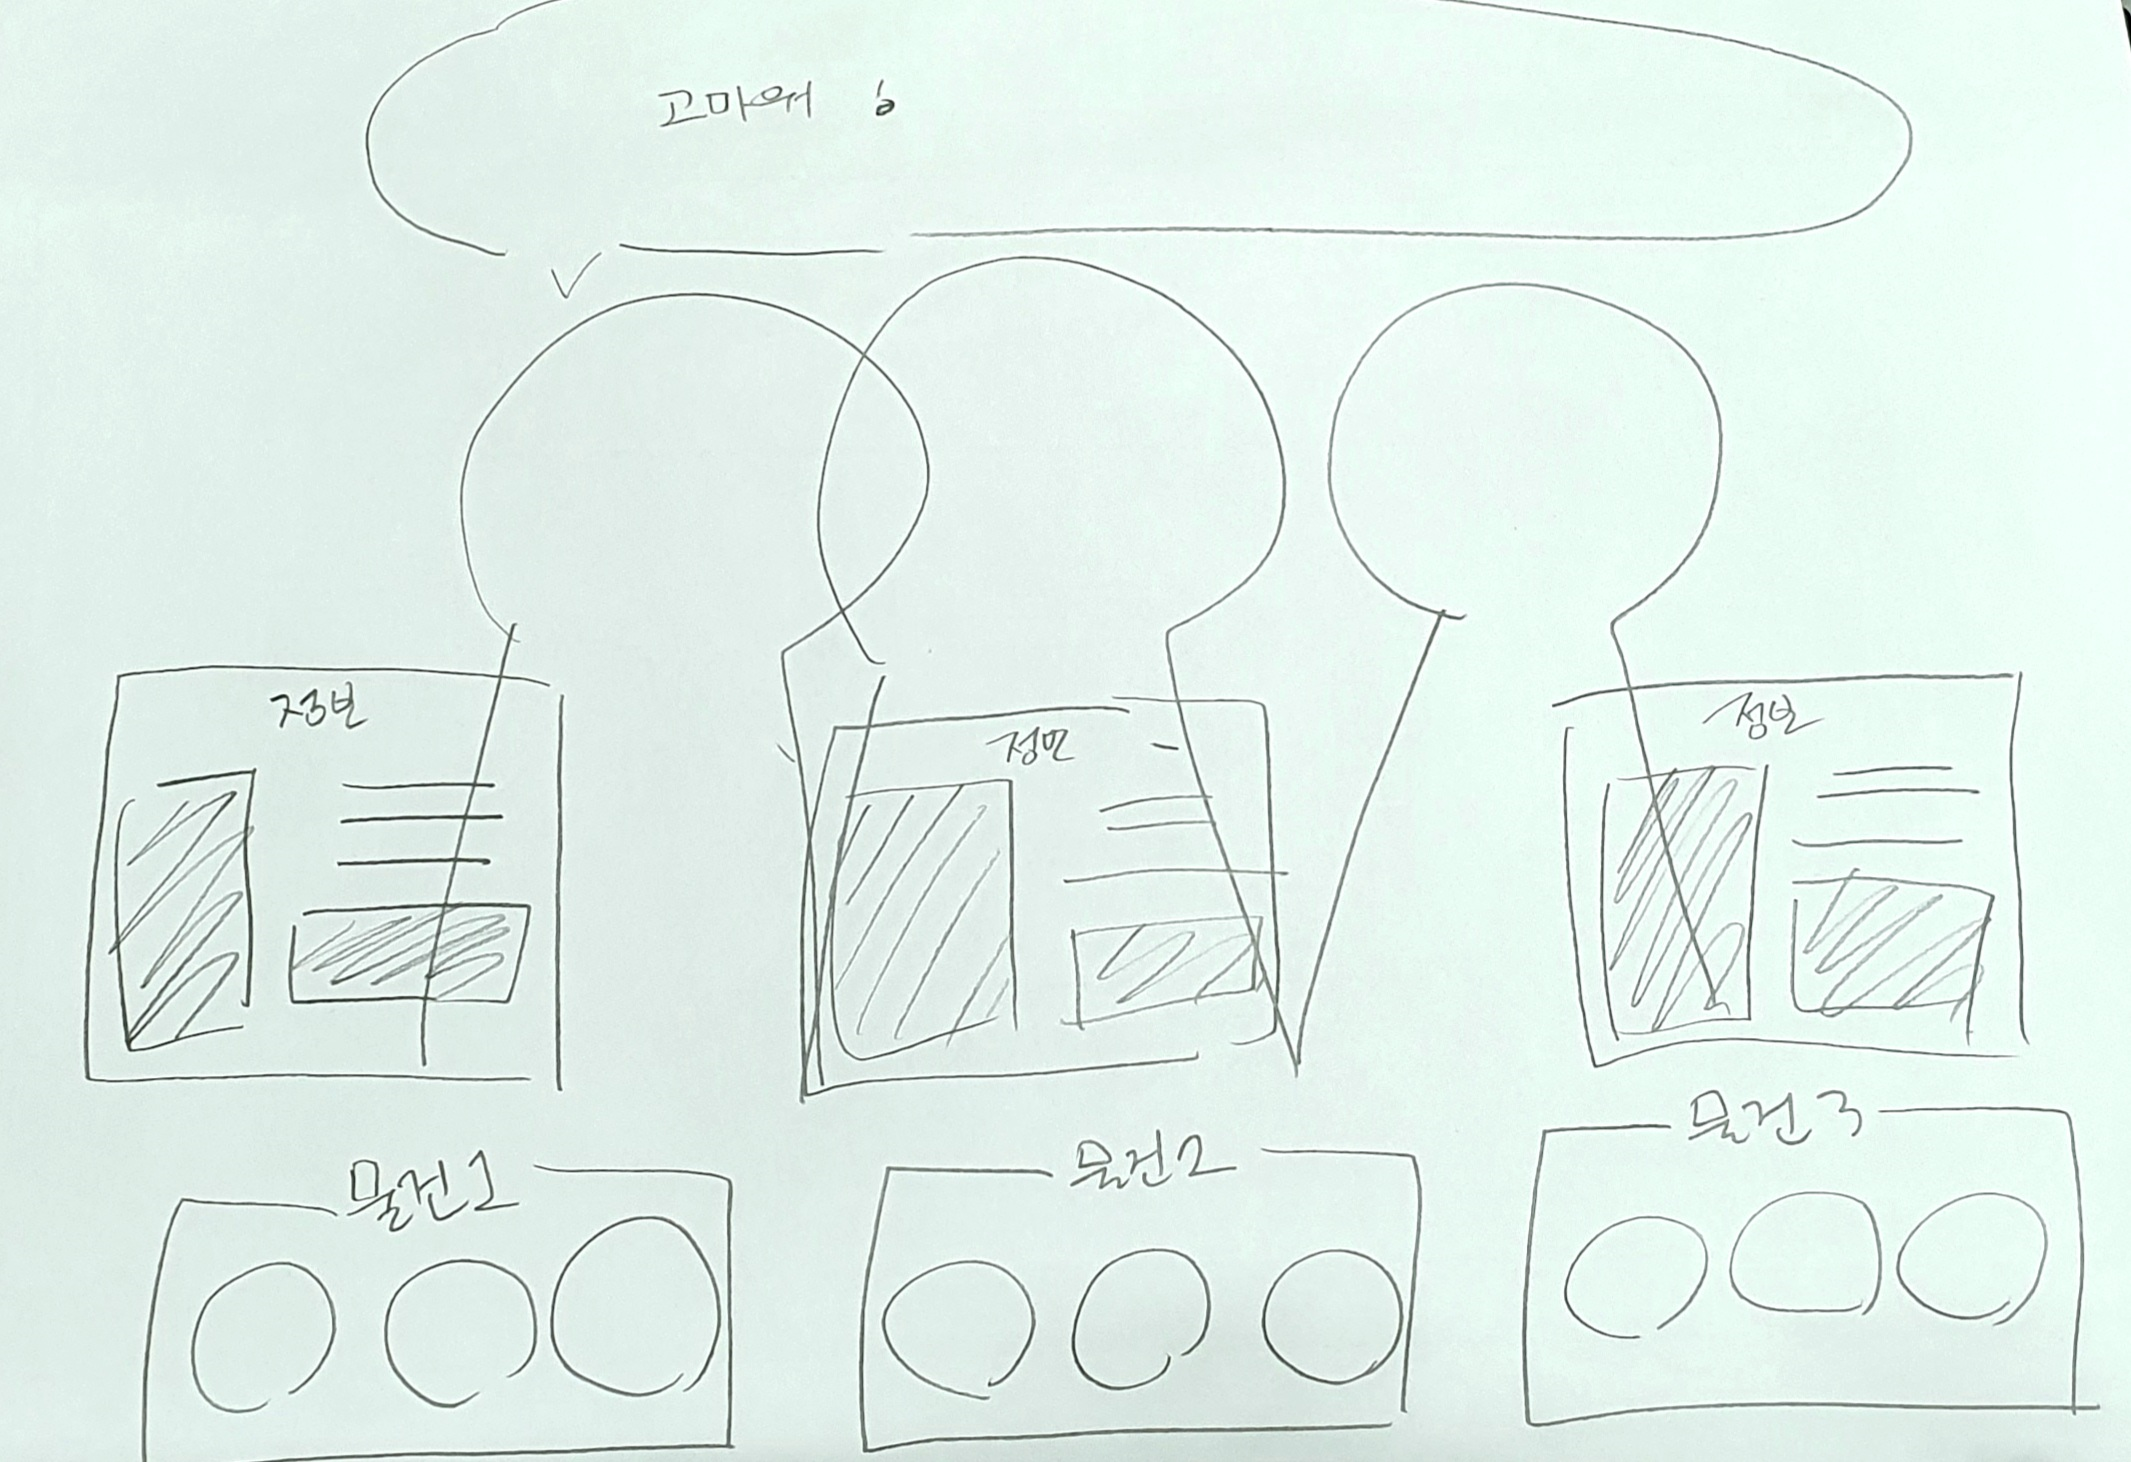 고마워
정보
정보
정보
물건1
물건2
물건3